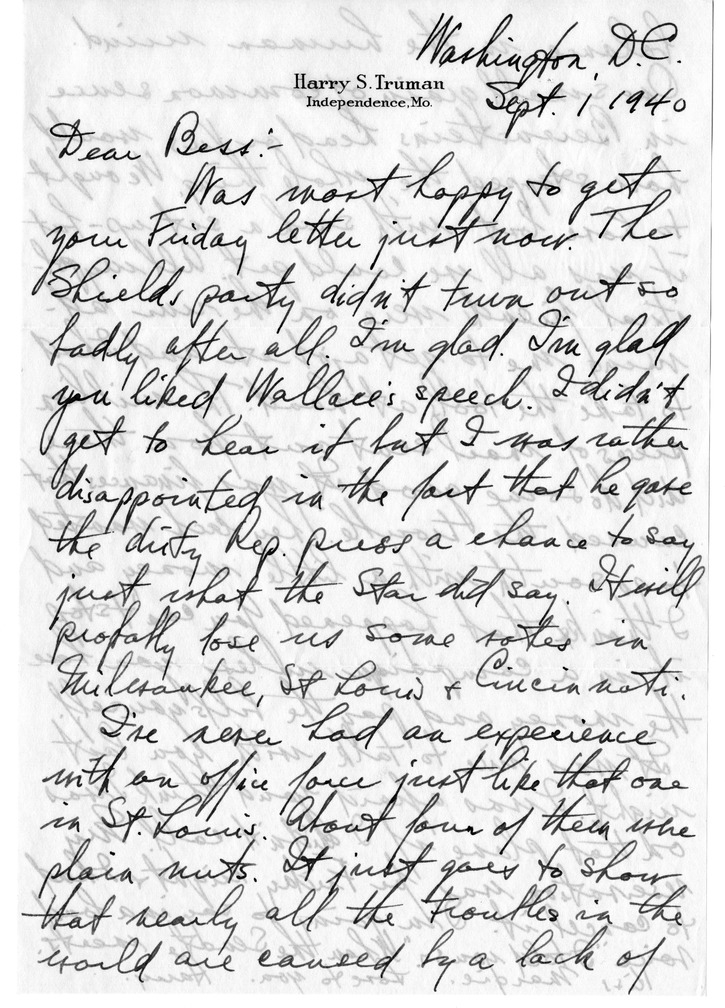 Washington, D.C.
Harry S. Truman
Independence, Mo.
Sept. 1, 1940
Dear Bess:-
Was most happy to get
your Friday letter just now. The
Shields party didn't turn out so
badly after all. I'm glad. I'm glad
you liked Wallace's speech. I didn't
get to hear it but I was rather
disappointed in the fact that he gave
the dirty Rep. press a chance to say
just what the Star did say. It will
probably lose us some votes in
Milwaukee, St Louis & Cincinnati.
I've never had an experience
with an office force just like that one
in St. Louis. About four of them were
plain nuts. It just goes to show
that nearly all the troubles in the
world are caused by a lack of